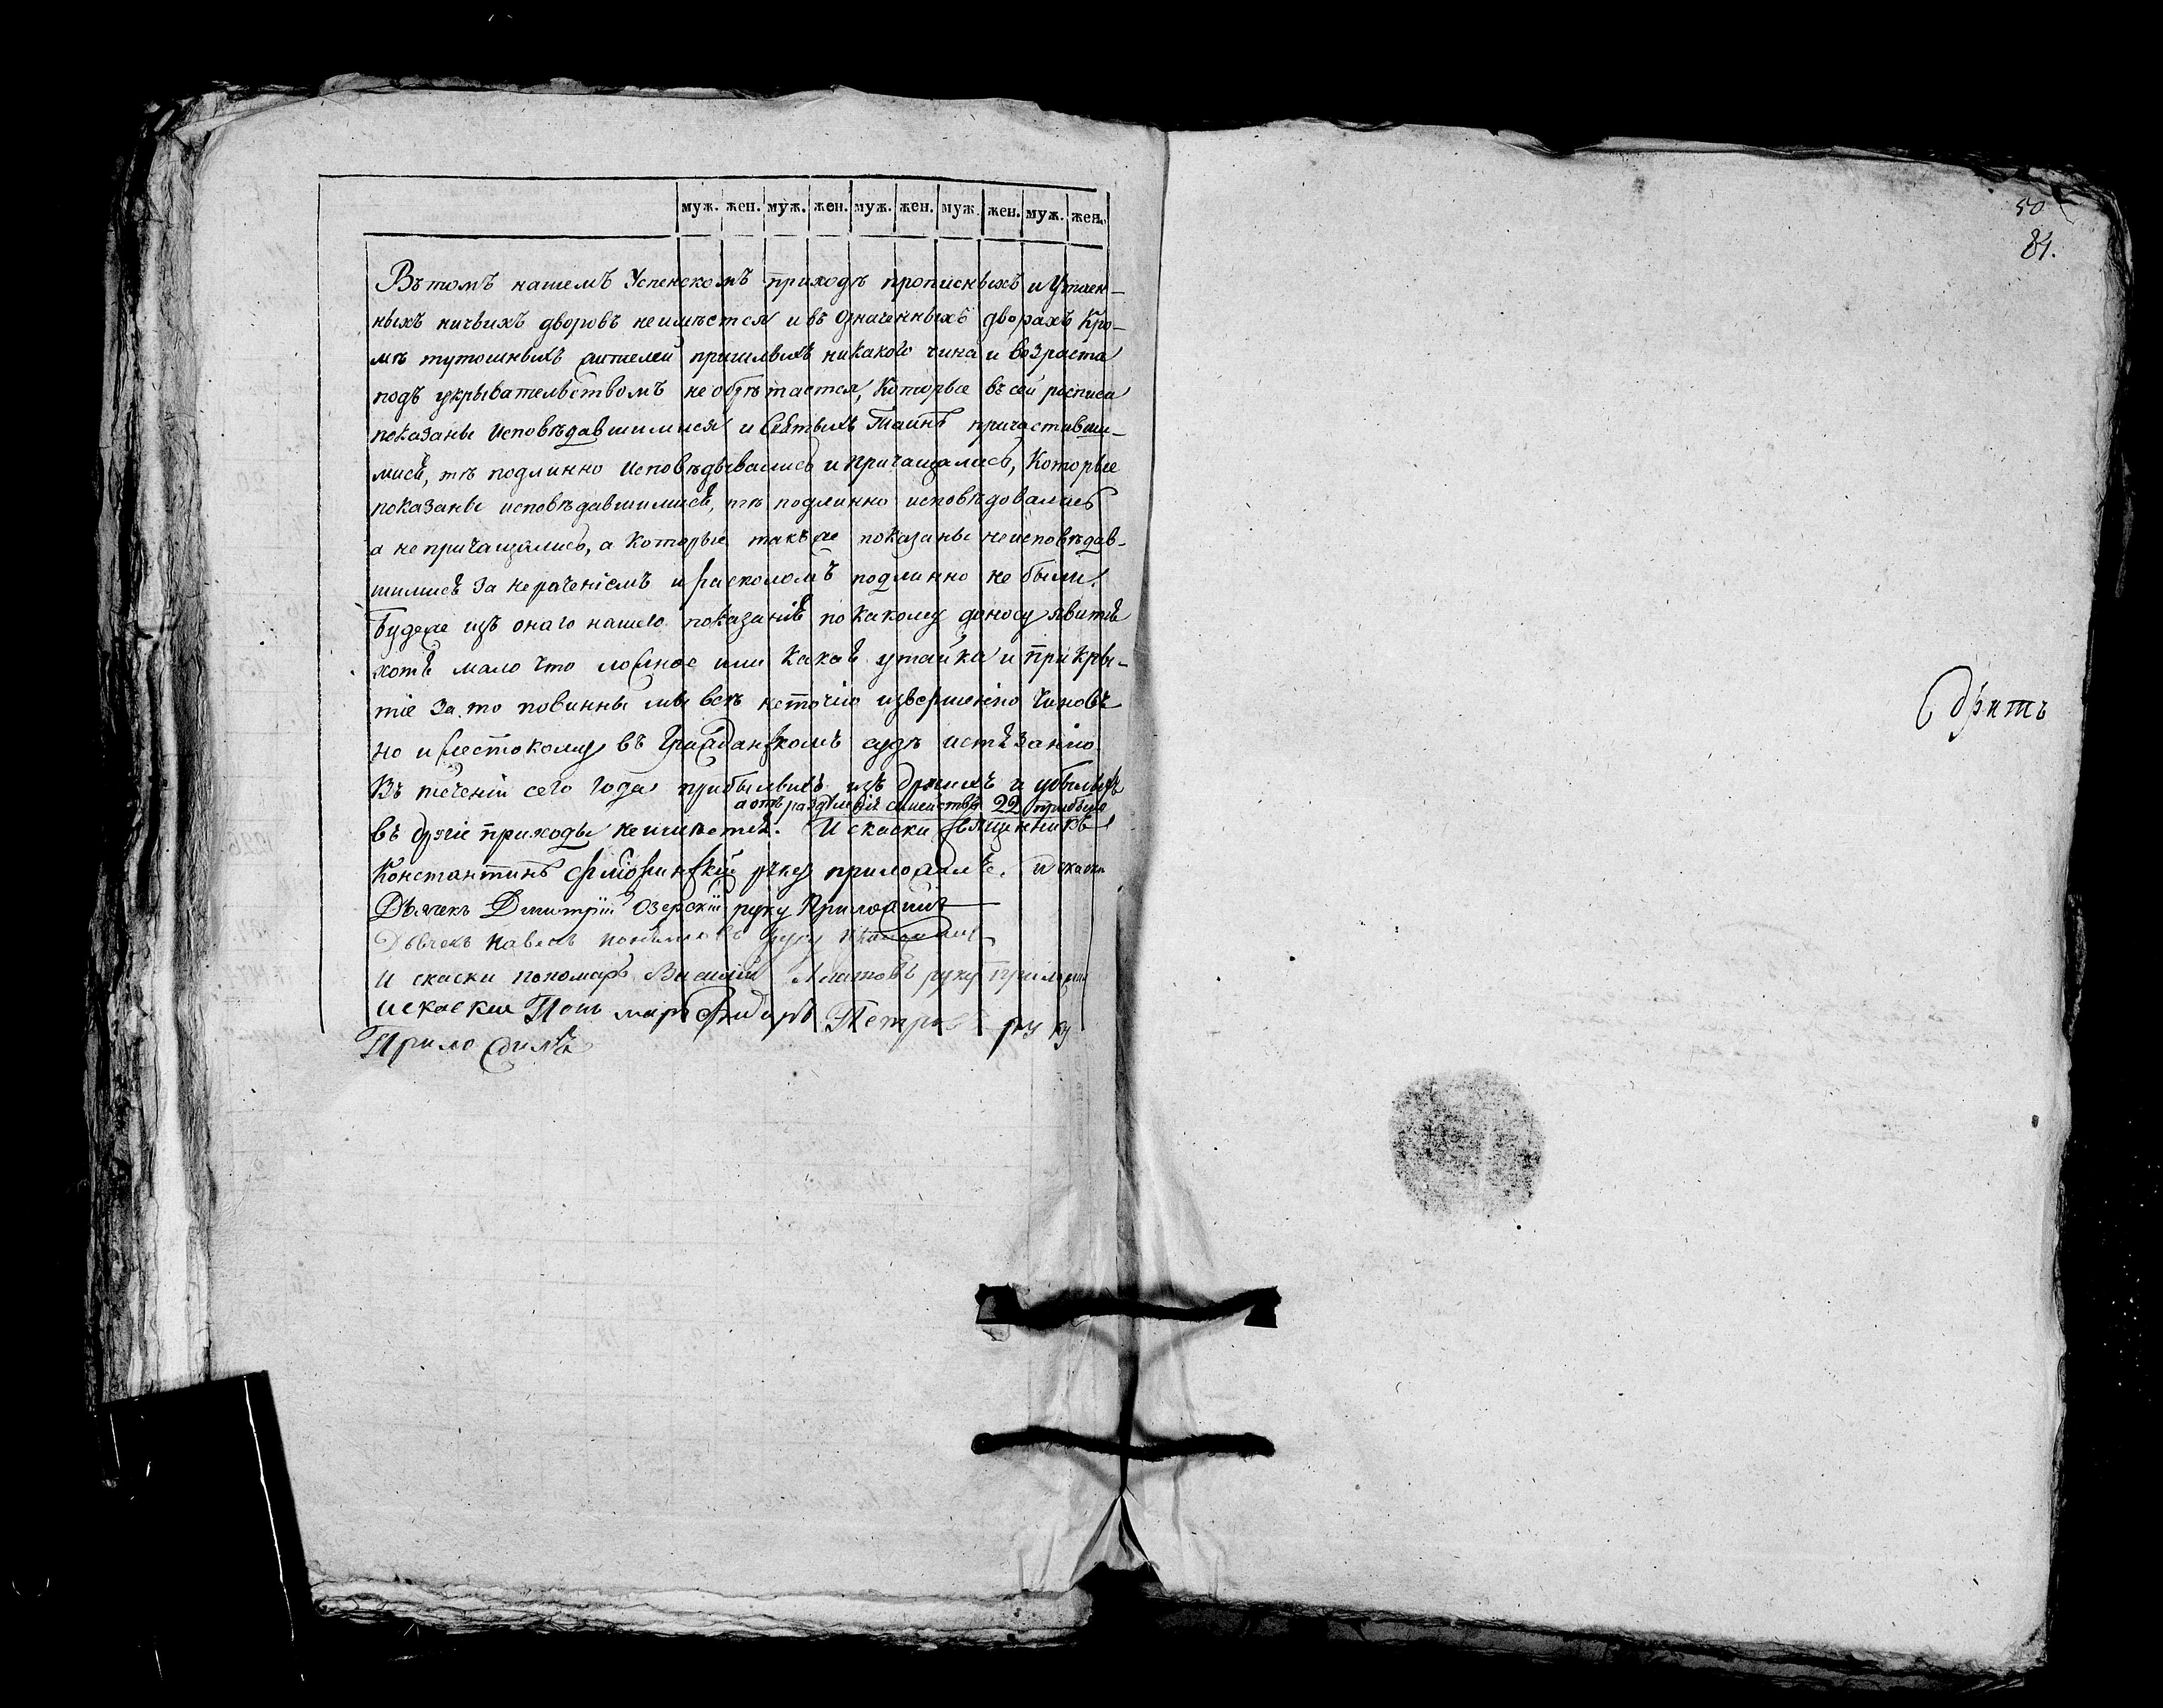 муж. жен. муж. жен. муж. жен. муж. жен. муж. жен.
Въ томъ нашемъ Успенскомъ приходѣ прописныхъ и утаен-
ныхъ ничьихъ дворовъ неимѣется и въ означенныхъ дворахъ Кро-
мѣ тутошныхъ жителей пришлыхъ никакого чина и возраста
подъ укрывательствомъ не обрѣтается, Которые въ сей росписи
показаны Исповѣдавшимися и Святыхъ Таинъ причастивши-
мись, тѣ подлинно Исповѣдывались и причащались, Которые
показаны исповѣдавшимись, тѣ подлинно исповѣдовались
а не причащались, а Которые такъ же показаны неисповѣдав-
шимись за нераченіемъ и расколомъ подлинно не были.
Будеже изъ онаго нашего показанія по какому доносу явится
хотя мало что ложное или какая утайка и прикры-
тіе За то повинны мы всѣ неточію изверженію чиновъ
но и жестокому въ Гражданскомъ судѣ истязанію
Въ теченіи сего года прибылыхъ изъ другихъ и убылыхъ
а отъ раздѣленія семейства 22 прибыло
въ другіе приходы неимѣется. И скаски священникъ
Константинъ руку приложилъ. И скаски
Дьячекъ Дмитрій Озерскій руку Приложилъ
Дьячекъ Павелъ руку приложилъ
И скаски пономарь Василій руку приложилъ
искаски Поно марь Фидоръ Петровъ руку
Приложилъ
50
84.